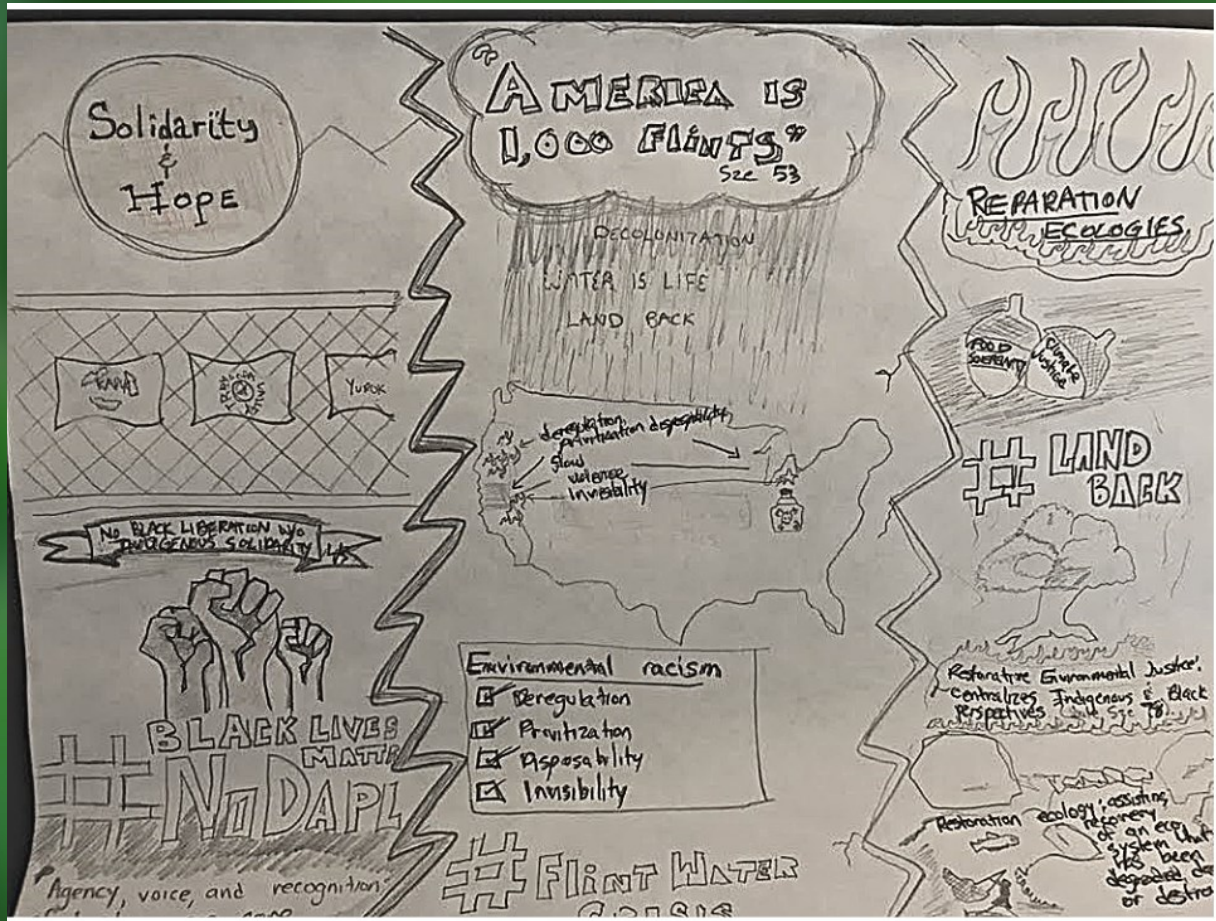 Solidarity
&
Hope
YUROK
NO BLACK LIBERATION W/O
INDIGENOUS SOLIDARITY
BLACK LIVES
MATTE
#NODAPL
"Agency, voice, and recognition"
"AMERICA IS
1,000 FLINTS"
Sze 53
DECOLONIZATION
WATER IS LIFE
LAND BACK
deregulation,
privitization disposability
Slow
violence
invisibility
Environmental racism
Deregulation
Privitization
Disposability
Invisibility
#FLINT WATER
CRISIS
REPARATION
ECOLOGIES
FOOD
SOVEREIGNTY
Climate
Justice
#LAND
BACK
Restorative Environmental Justice:
centralizes Indigenous & Black
Perspectives Sze 78
Restoration ecology: assisting
recovery
of an eco
system that
has been
degraded, da
or destro